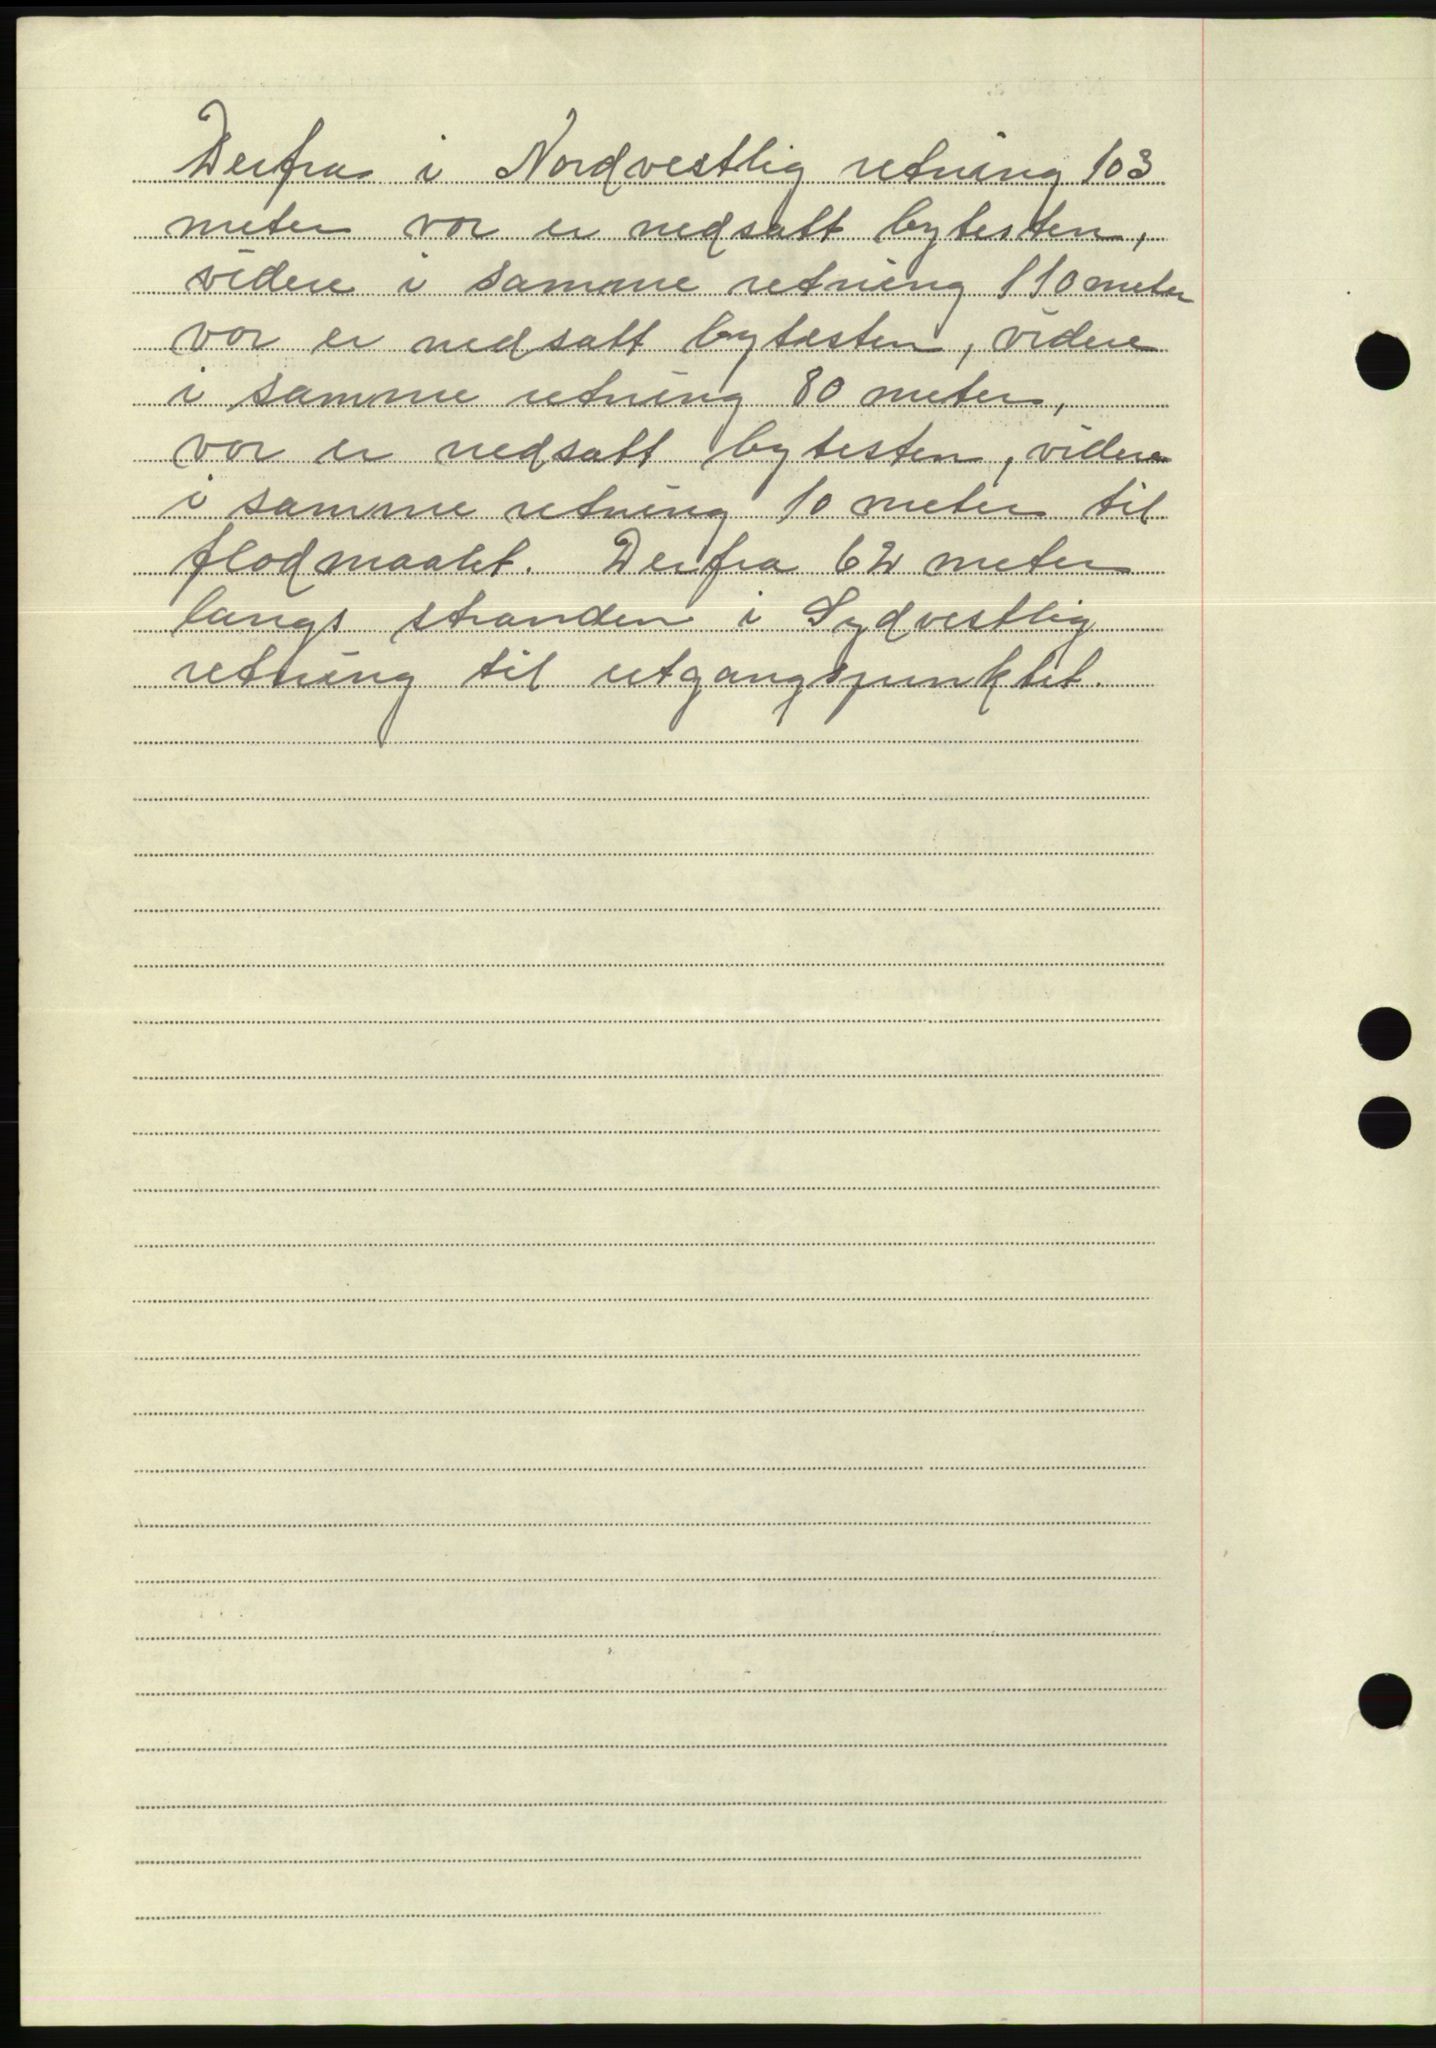 Derfra i Nordvestlig retning 103
meter vor er nedsatt bytesten,
videre i samme retning 110 meter
vor er nedsatt bytesten, videre
i samme retning 80 meter,
vor er nedsatt bytesten, videre
i samme retning 10 meter til
flodmaalet. Derfra 62 meter
langs stranden i Sydvestlig
retning til utgangspunktet.